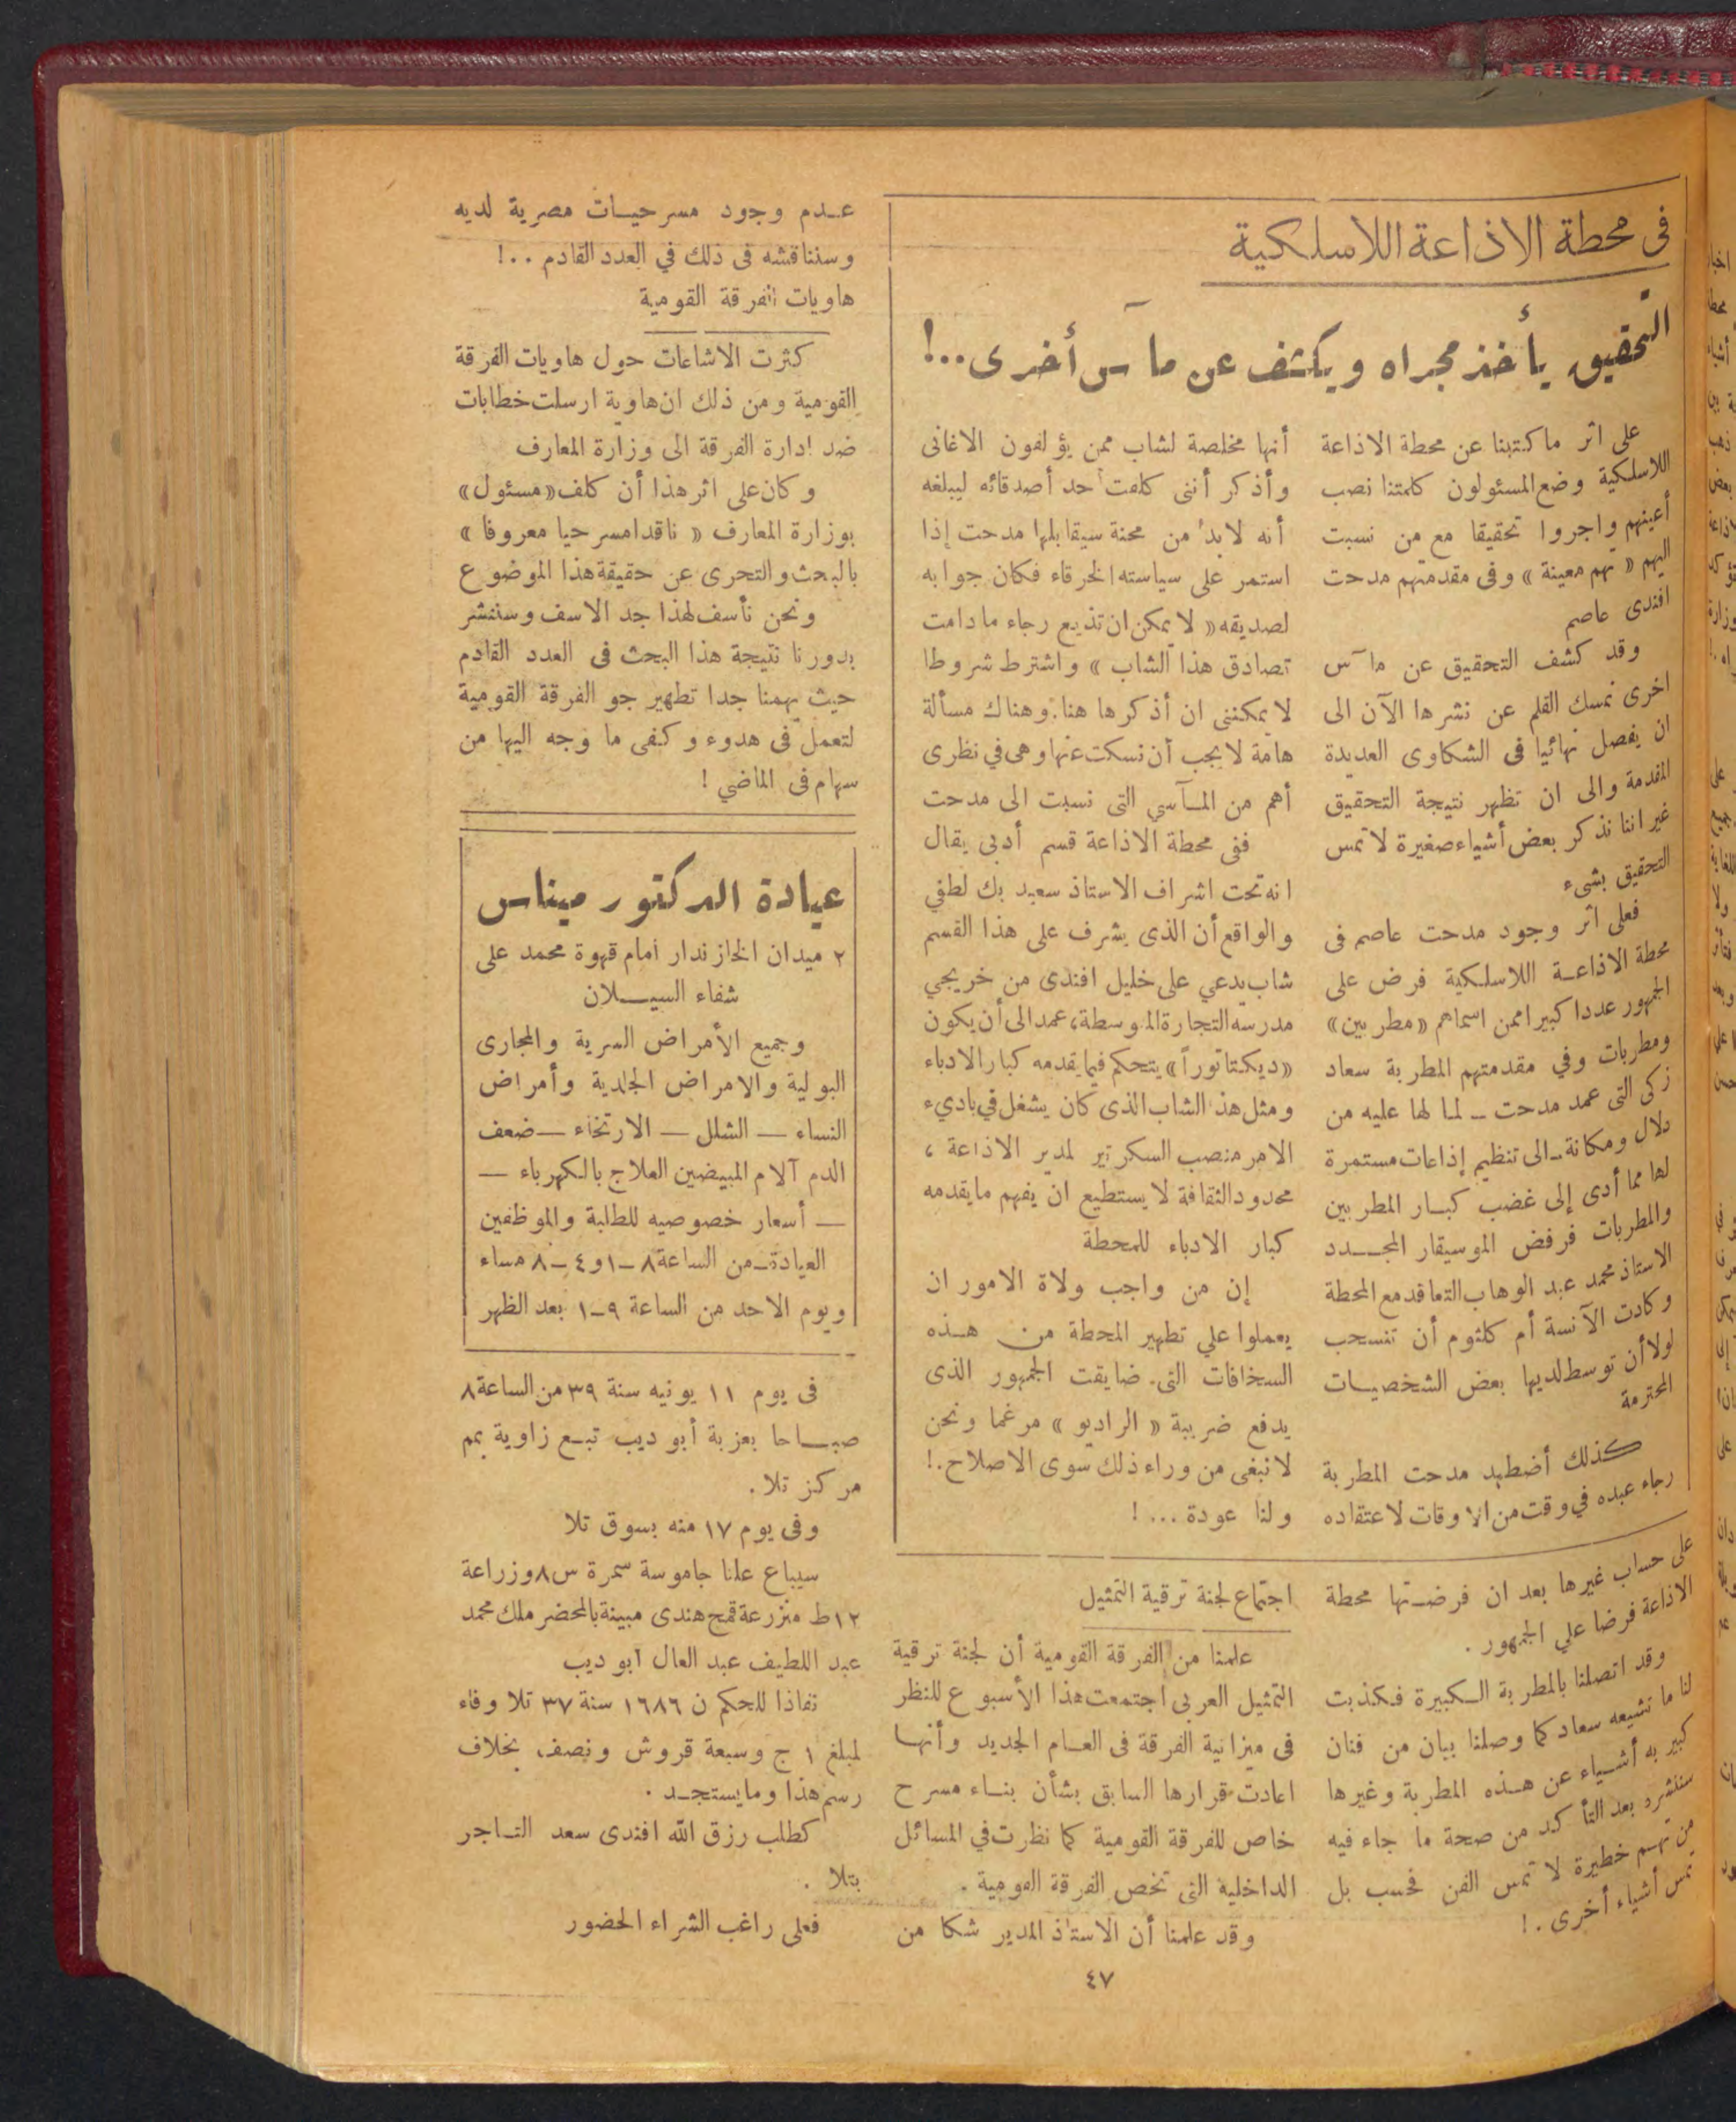 فى محطة الاذاعة اللاسلكية
التحقيق يأخذ مجراه ويكشف عن مآس أخرى..!
على اثر ماكتبنا عن محطة الاذاعة
اللاسلكية وضع المسئولون كلمتنا نصب
أعينهم واجروا تحقيقا مع من نسبت
اليهم « تهم معينة » وفى مقدمتهم مدحت
افندى عاصم
وقد كشف التحقيق عن مآس
اخرى نمسك القلم عن نشرها الآن الى
ان يفصل نهائيا فى الشكاوى العديدة
المقدمة والى ان تظهر نتيجة التحقيق
غير اننا نذكر بعض أشياء صغيرة لا تمس
التحقيق بشىء
فعلى اثر وجود مدحت عاصم فى
محطة الاذاعة اللاسلكية فرض على
الجمهور عددا كبيرا ممن اسماهم «مطربين»
ومطربات وفي مقدمتهم المطربة سعاد
زكى التى عمد مدحت ـ لما لها عليه من
دلال ومكانة ـ الى تنظيم إذاعات مستمرة
لها مما أدى إلى غضب كبار المطربين
والمطربات فرفض الموسيقار المجدد
الاستاذ محمد عبد الوهاب التعاقد مع المحطة
وكادت الآنسة أم كلثوم أن تنسحب
لولا أن توسط لديها بعض الشخصيات
المحترمة
كذلك أضطهد مدحت المطربة
رجاء عبده في وقت من الاوقات لاعتقاده
أنها مخلصة لشاب ممن يؤلفون الاغانى
وأذكر أننى كلفت أحد أصدقائه ليبلغه
أنه لابد من محنة سيقابلها مدحت إذا
استمر على سياسته الخرقاء فكان جوابه
لصديقه « لا يمكن ان تذيع رجاء مادامت
تصادق هذا الشاب » واشترط شروطا
لا يمكننى ان أذكرها هنا. وهناك مسألة
هامة لا يجب أن نسكت عنها وهى في نظرى
أهم من المآسي التى نسبت الى مدحت
ففى محطة الاذاعة قسم أدبى يقال
انه تحت اشراف الاستاذ سعيد بك لطفي
والواقع أن الذى يشرف على هذا القسم
شاب يدعي على خليل افندى من خريجي
مدرسه التجارة الموسطة، عمد الى أن يكون
«ديكتاتوراً» يتحكم فيما يقدمه كبار الادباء
ومثل هذ الشاب الذى كان يشغل في باديء
الامر منصب السكرتير لمدير الاذاعة ،
محدود الثقافة لا يستطيع ان يفهم مايقدمه
كبار الادباء للمحطة
إن من واجب ولاة الامور ان
يعملوا علي تطهير المحطة من هذه
السخافات التى ضايقت الجمهور الذى
يدفع ضريبة « الراديو » مرغما ونحن
لا نبغى من وراء ذلك سوى الاصلاح.!
ولنا عودة ... !
على حساب غيرها بعد ان فرضتها محطة
الاذاعة فرضا علي الجمهور .
وقد اتصلنا بالمطربة الكبيرة فكذبت
لنا ما تشيعه سعاد كما وصلنا بيان من فنان
كبير به أشياء عن هذه المطربة وغيرها
سننشره بعد التأكد من صحة ما جاء فيه
من تهم خطيرة لا تمس الفن فحسب بل
تمس أشياء أخرى . !
اجتماع لجنة ترقية التمثيل
علمنا من الفرقة القومية أن لجنة ترقية
التمثيل العربى اجتمعت هذا الأسبوع للنظر
فى ميزانية الفرقة فى العام الجديد وأنها
اعادت قرارها السابق بشأن بناء مسرح
خاص للفرقة القومية كما نظرت في المسائل
الداخلية التى تخص الفرقة القومية .
وقد علمنا أن الاستاذ المدير شكا من
عدم وجود مسرحيات مصرية لديه
وسنناقشه فى ذلك في العدد القادم ..!
هاويات الفرقة القومية
كثرت الاشاعات حول هاويات الفرقة
القومية ومن ذلك ان هاوية ارسلت خطابات
ضد ادارة الفرقة الى وزارة المعارف
وكان على اثر هذا أن كلف «مسئول»
بوزارة المعارف « ناقدا مسرحيا معروفا »
بالبحث والتحرى عن حقيقة هذا الموضوع
ونحن نأسف لهذا جد الاسف وسننشر
بدورنا نتيجة هذا البحث فى العدد القادم
حيث يهمنا جدا تطهير جو الفرقة القومية
لتعمل فى هدوء وكفى ما وجه اليها من
سهام فى الماضي !
عيادة الدكتور ميناس
٢ ميدان الخازندار امام قهوة محمد على
شفاء السيلان
وجميع الأمراض السرية والمجارى
البولية والامراض الجلدية وأمراض
النساء — الشلل — الارتخاء — ضعف
الدم آلام المبيضين العلاج بالكهرباء —
— أسعار خصوصيه للطلبة والموظفين
العيادة ـ من الساعة ٨ ـ ١ و ٤ ـ ٨ مساء
ويوم الاحد من الساعة ٩ـ١ بعد الظهر
فى يوم ١١ يونيه سنة ٣٩ من الساعة ٨
صباحا بعزبة أبو ديب تبع زاوية بمم
مركز تلا .
وفى يوم ١٧ منه بسوق تلا
سيباع علنا جاموسة سمرة س ٨ وزراعة
١٢ ط منزرعة قمح هندى مبينة بالمحضر ملك محمد
عبد اللطيف عبد العال ابو ديب
نفاذا للحكم ن ١٦٨٦ سنة ٣٧ تلا وفاء
لمبلغ ١ ج وسبعة قروش ونصف بخلاف
رسم هذا وما يستجد .
كطلب رزق الله افندى سعد التاجر
بتلا .
فعلى راغب الشراء الحضور
٤٧